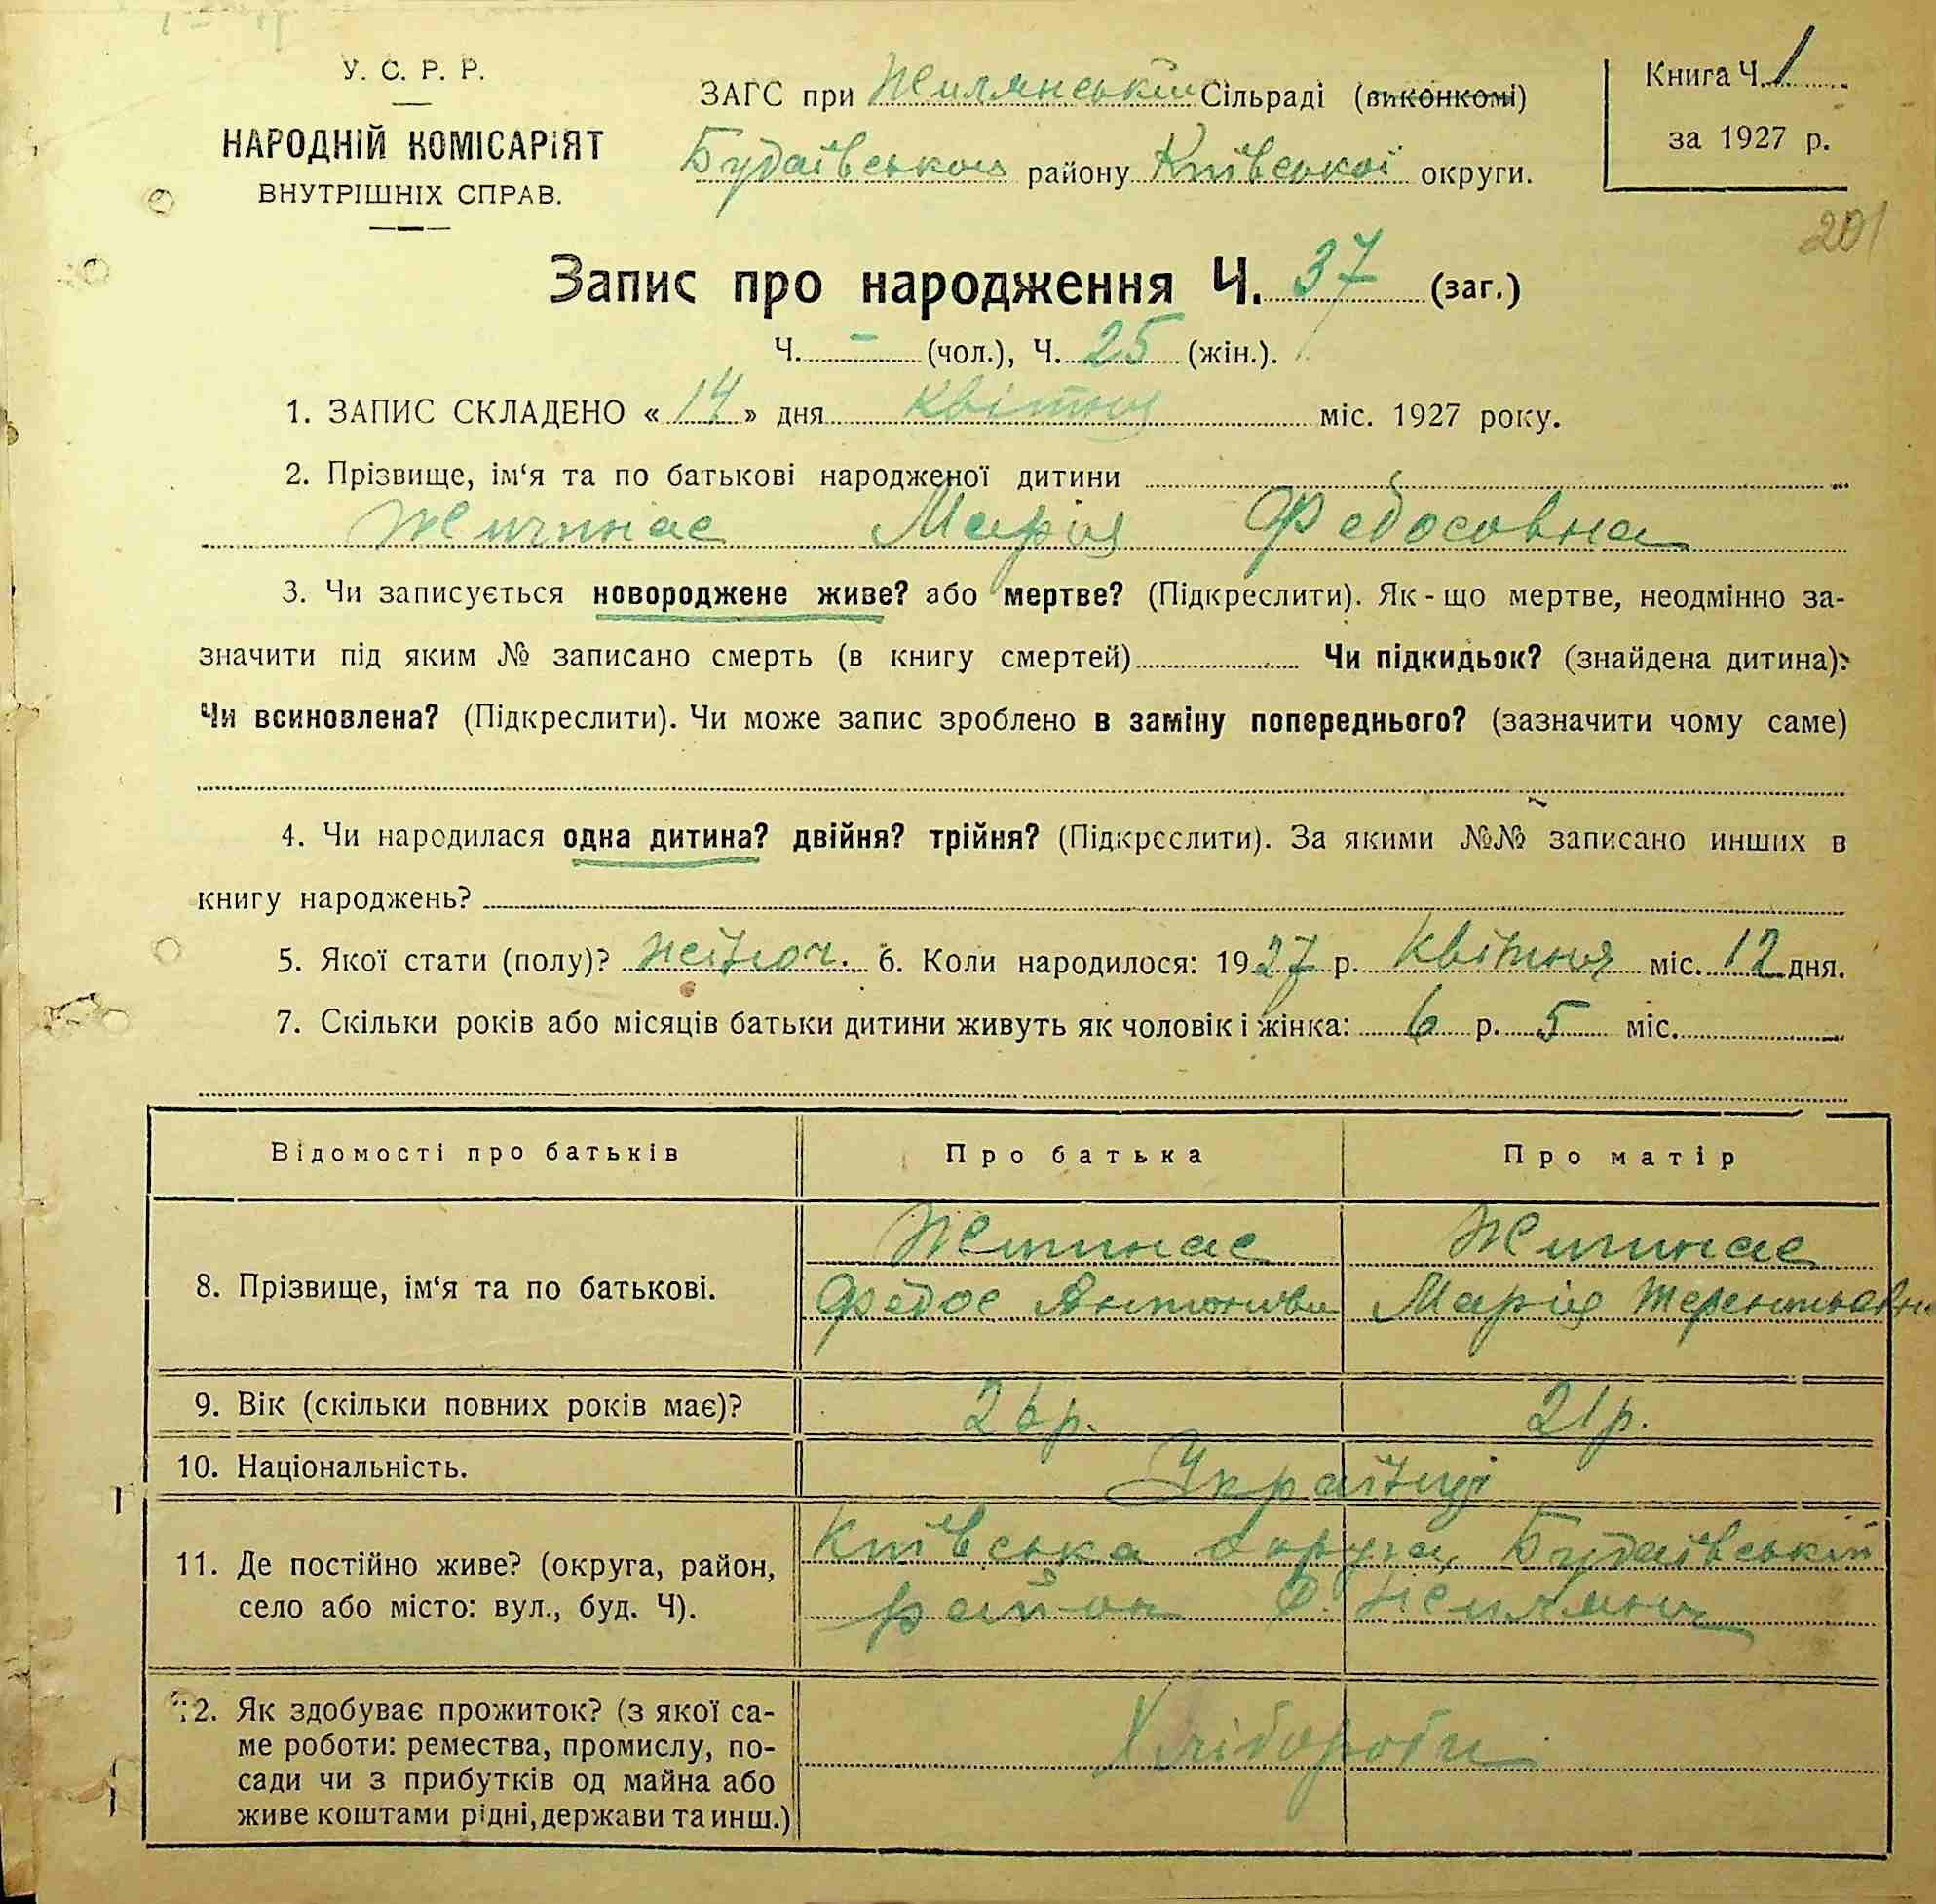 У. С. Р. Р.
НАРОДНІЙ КОМІСАРІЯТ
ВНУТРІШНІХ СПРАВ.
ЗАГС при Жилянській Сільраді (виконкомі)
Будаївського району Київської округи.
Книга Ч. 1
за 1927 р.
201
Запис про народження Ч. 37 (заг.)
Ч. - (чол.), Ч. 25 (жін.).
1. ЗАПИС СКЛАДЕНО « 14 » дня квітня міс. 1927 року.
2. Прізвище, ім‘я та по батькові народженої дитини
Марія Федосовна
3. Чи записується новороджене живе? або мертве? (Підкреслити). Як-що мертве, неодмінно за-
значити під яким № записано смерть (в книгу смертей) Чи підкидьок? (знайдена дитина)?
Чи всиновлена? (Підкреслити). Чи може запис зроблено в заміну попереднього? (зазначити чому саме)
4. Чи народилася одна дитина? двійня? трійня? (Підкреслити). За якими №№ записано инших в
книгу народжень?
5. Якої стати (полу)? жіноч. 6. Коли народилося: 1927 р. Квітня міс. 12 дня.
7. Скільки років або місяців батьки дитини живуть як чоловік і жінка: 6 р. 5 міс.
Відомості про батьків
Про батька
Про матір
8. Прізвище, ім‘я та по батькові.
Федос Антонови
Марія Терентьевн
9. Вік (скільки повних років має)?
26 р.
21 р.
10. Національність.
Українці
11. Де постійно живе? (округа, район,
село або місто: вул., буд. Ч).
Київська округа, Будаївській
район с. Жиляни
12. Як здобуває прожиток? (з якої са-
ме роботи: ремества, промислу, по-
сади чи з прибутків од майна або
живе коштами рідні, держави та инш.)
Хлібороби